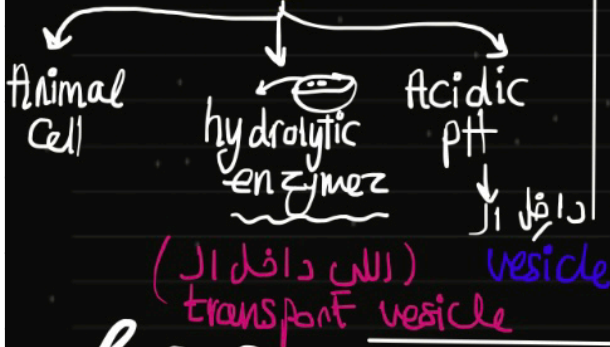 Animal
Cell
hydrolytic
enzymez
Acidic
pH
داخل ال
vesicle
(اللي داخل ال)
transport vesicle